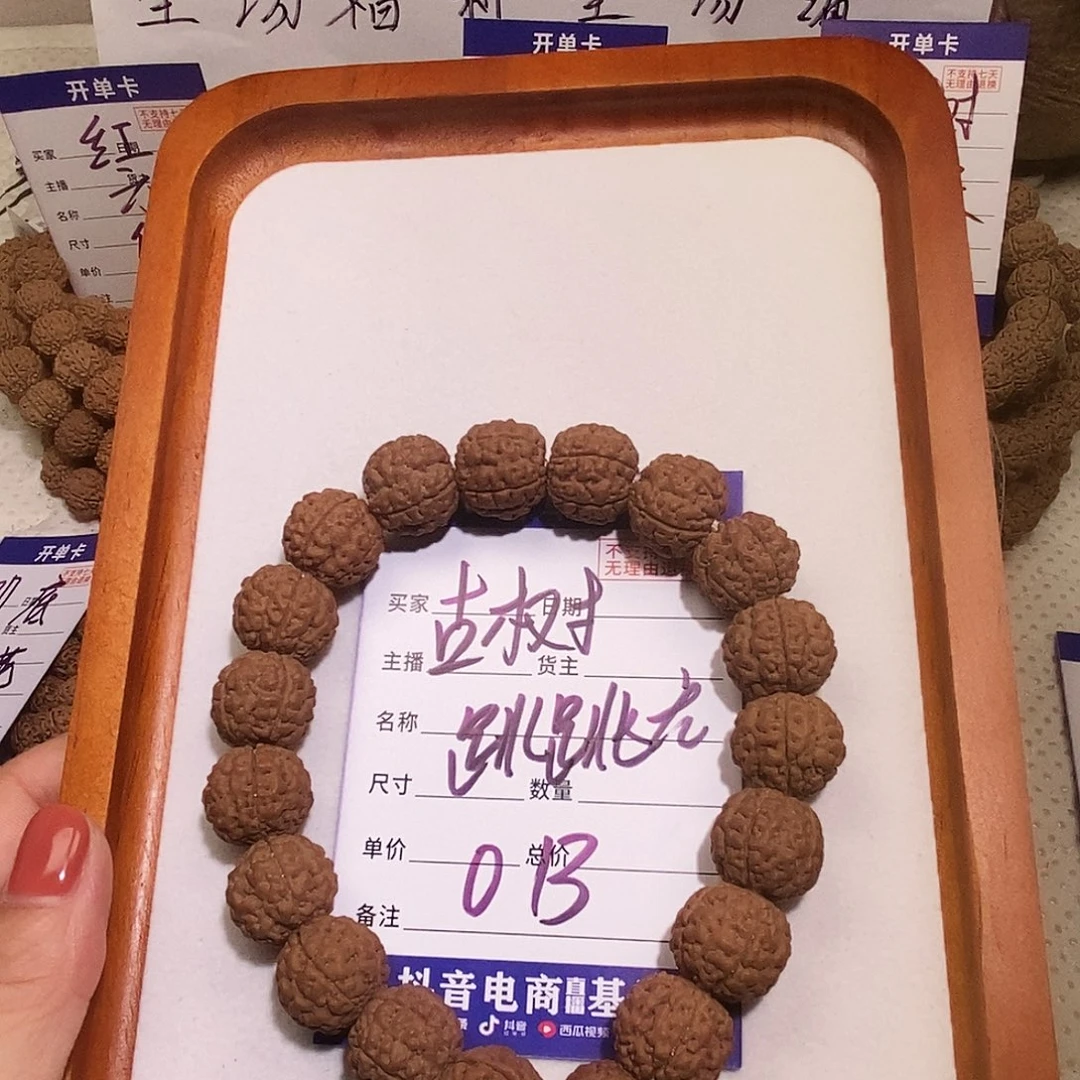 全场福利全场
开单卡
开单卡
开单卡
不支持七天
无理由退换
红
买家
主播
名称
尺寸
单价
开单卡
底
无理由退
买家 古树 日期
主播 货主
名称 跳跳龙
尺寸 数量
单价 总价
0 13
备注
抖音电商直播基
抖音 西瓜视频